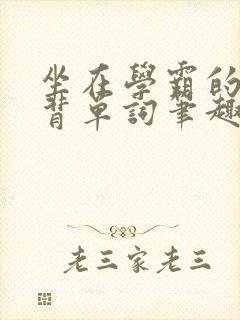 坐在學霸的
背單詞筆趣
老三家老三